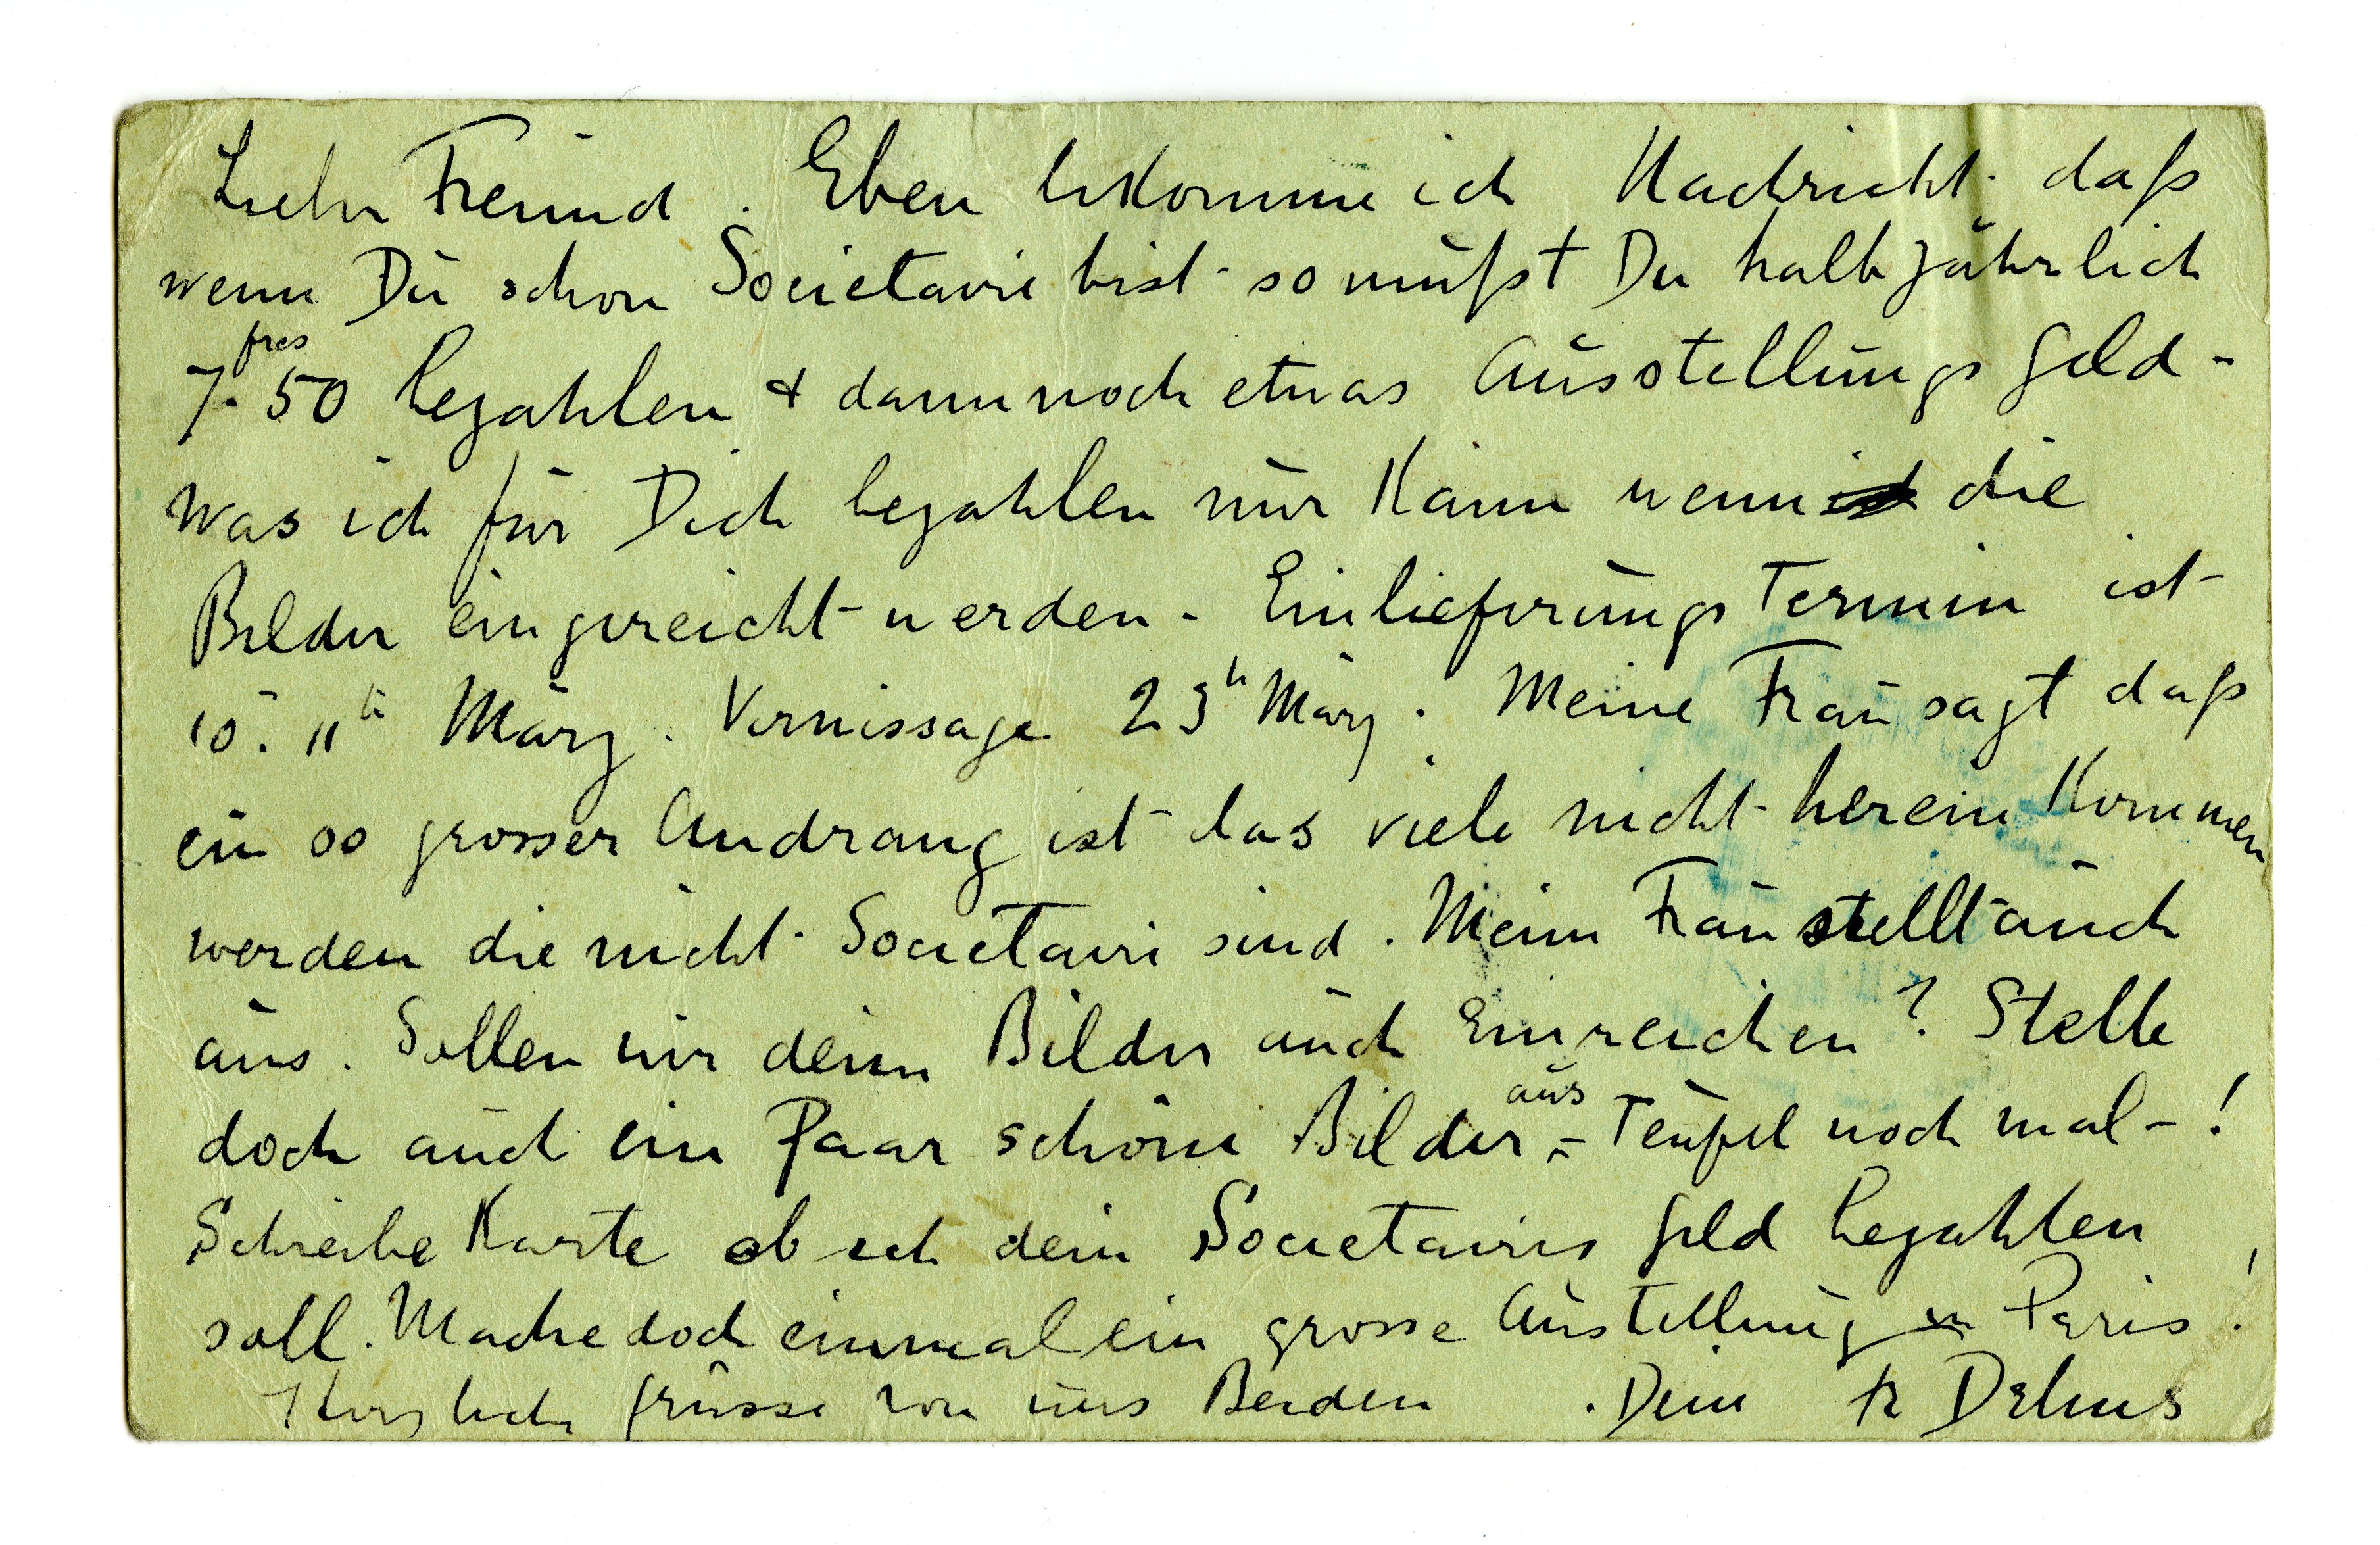 Lieber Freund. Eben bekomme ich Nachricht daß
wenn Du schon Societaire bist so mußt Du halbjährlich
7.50 frcs bezahlen & dann noch etwas Ausstellungs Geld -
Was ich für Dich bezahlen nur Kann wenn ich die
Bilder eingereicht werden - Einlieferungs Termin ist
10. 11te März. Vernissage 23te März. Meine Frau sagt daß
ein so grosser Andrang ist das viele nicht herein Kommen
werden die nicht Societaire sind. Meine Frau stellt auch
aus. Sollen wir deine Bilder auch Einreichen? Stelle
doch auch ein Paar schöne Bilder aus - Teufel noch mal - !
Schreibe Karte ob ich dein Societaires Geld bezahlen
soll. Mache doch einmal ein grosse Austellung in Paris!
Herzliche Grüsse von uns Beiden . Dein Fr Delius